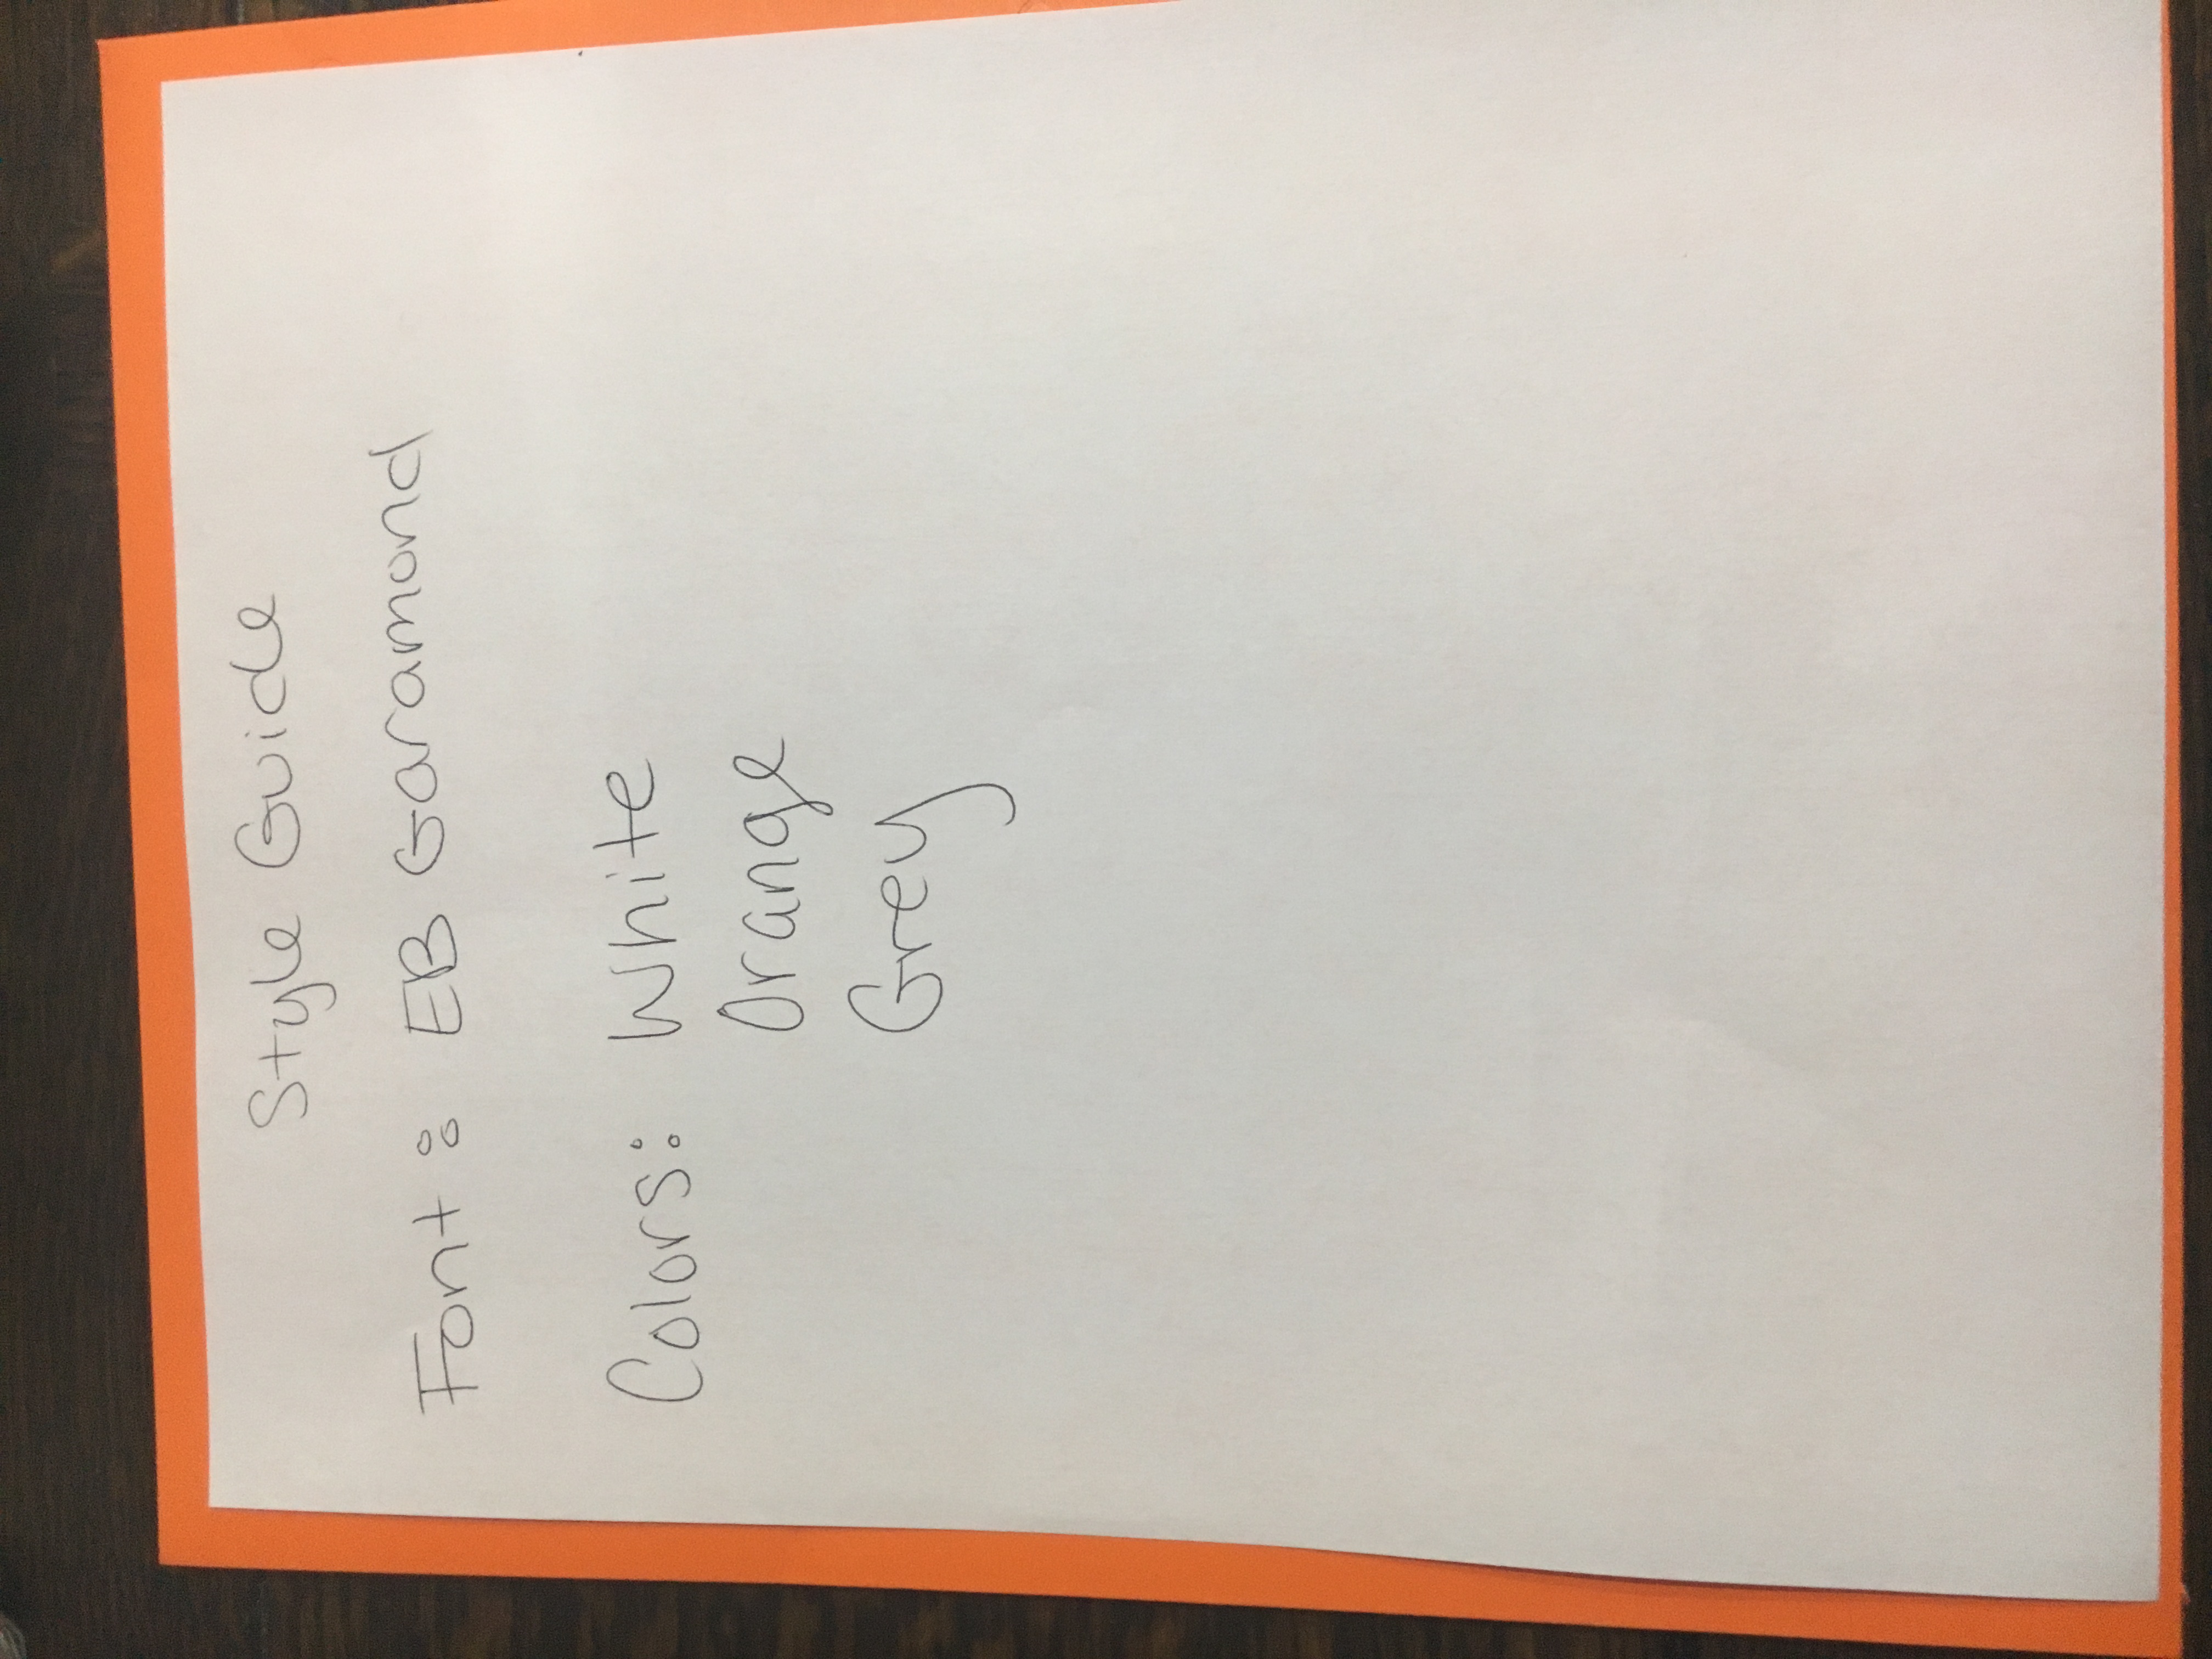 Style Guide
Font: EB Garamond
Colors: White
Orange
Grey